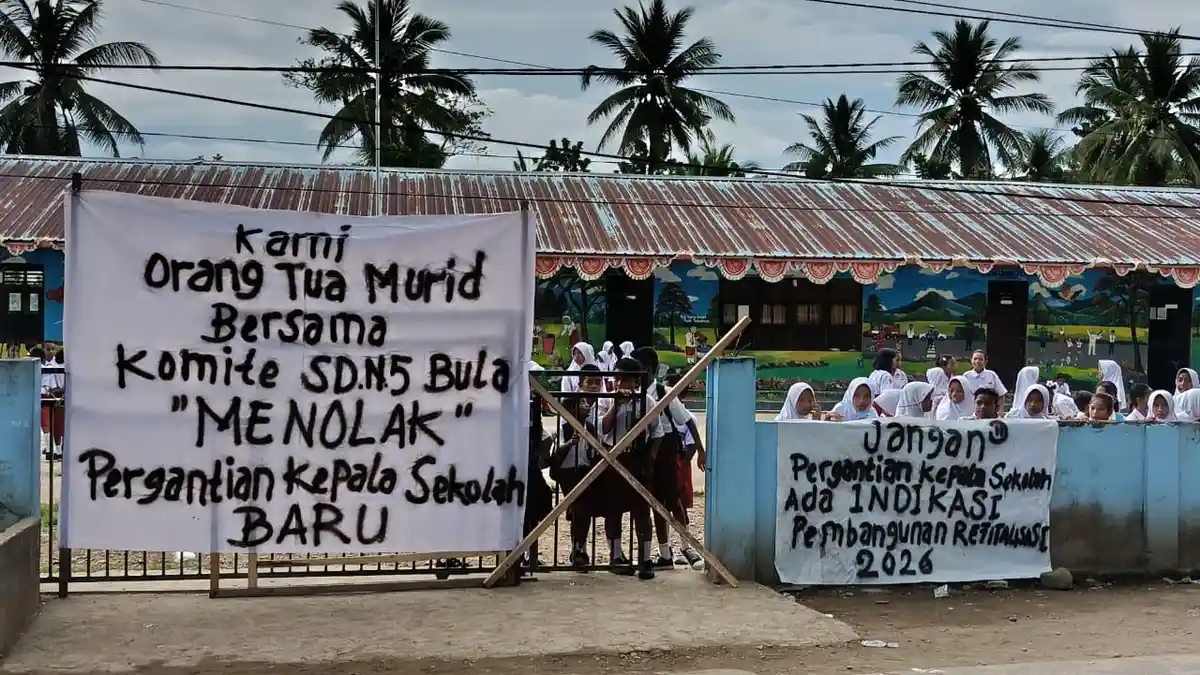 Kami
Orang Tua Murid
Bersama
Komite SD.N.5 Bula
"MENOLAK"
Pergantian Kepala Sekolah
BARU
Jangan
Pergantian Kepala Sekolah
Ada INDIKASI
Pembangunan
2026